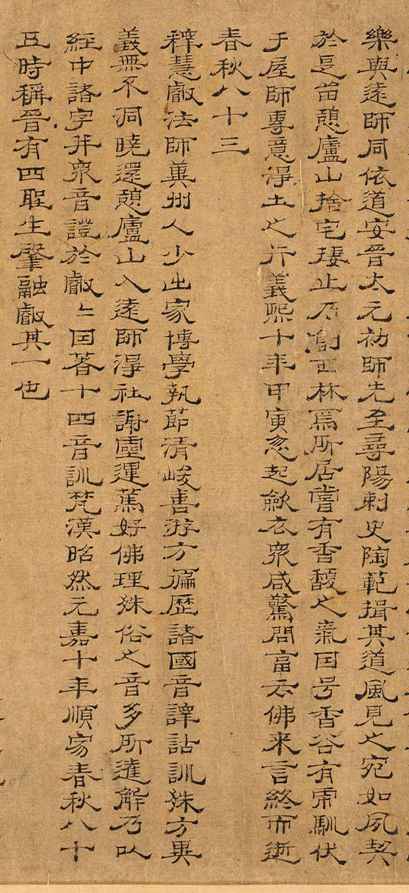 樂與遠師同依道安晉太元初師先至尋陽刺史陶範挹其道風見之宛如夙契
於是留憩廬山捨宅棲止乃創西林爲所居嘗有香馥之氣因号香谷有虎馴伏
于屋師專意淨土之行義熙十年甲寅忽起歛衣衆咸驚問富云佛來言終而逝
春秋八十三
釋慧叡法師冀州人少出家博學執節清峻善遊方徧歷諸國音譯詁訓殊方異
義無不洞曉還憩廬山入遠師淨社謝靈運篤好佛理殊俗之音多所達解乃以
經中諸字并衆音證於叡〻因著十四音訓梵漢昭然元嘉十年順寂春秋八十
五時稱晉有四聖生肇融叡其一也